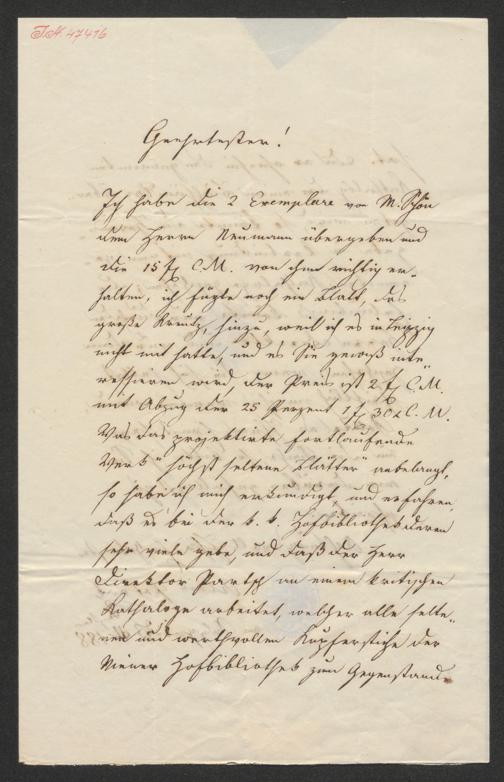 J.N. 47416
Geehrtester!
Ich habe die 2 Exemplare von M. Schön
dem Herrn Neumann übergeben und
die 15 f C.M. von ihm richtig er-
halten, ich fügte noch ein Blatt, das
große Kreutz, hinzu, weil ich es in Leipzig
nicht mit hatte, und es Sie gewiß inte-
ressieren wird, der Preis ist 2 f C.M.
mit Abzug der 25 Perzent 1 f 30 x C.M.
Was das projektirte fortlaufende
Werk "höchst seltene Blätter" anbelangt,
so habe ich mich erkundigt, und erfahren,
daß es bei der k. k. Hofbibliothek deren
sehr viele gebe, und daß der Herr
Direktor Bartsch an einem kritischen
Kathaloge arbeitet, welcher alle selte-
nen und werthvollen Kupferstiche der
Wiener Hofbibliothek zum Gegenstande